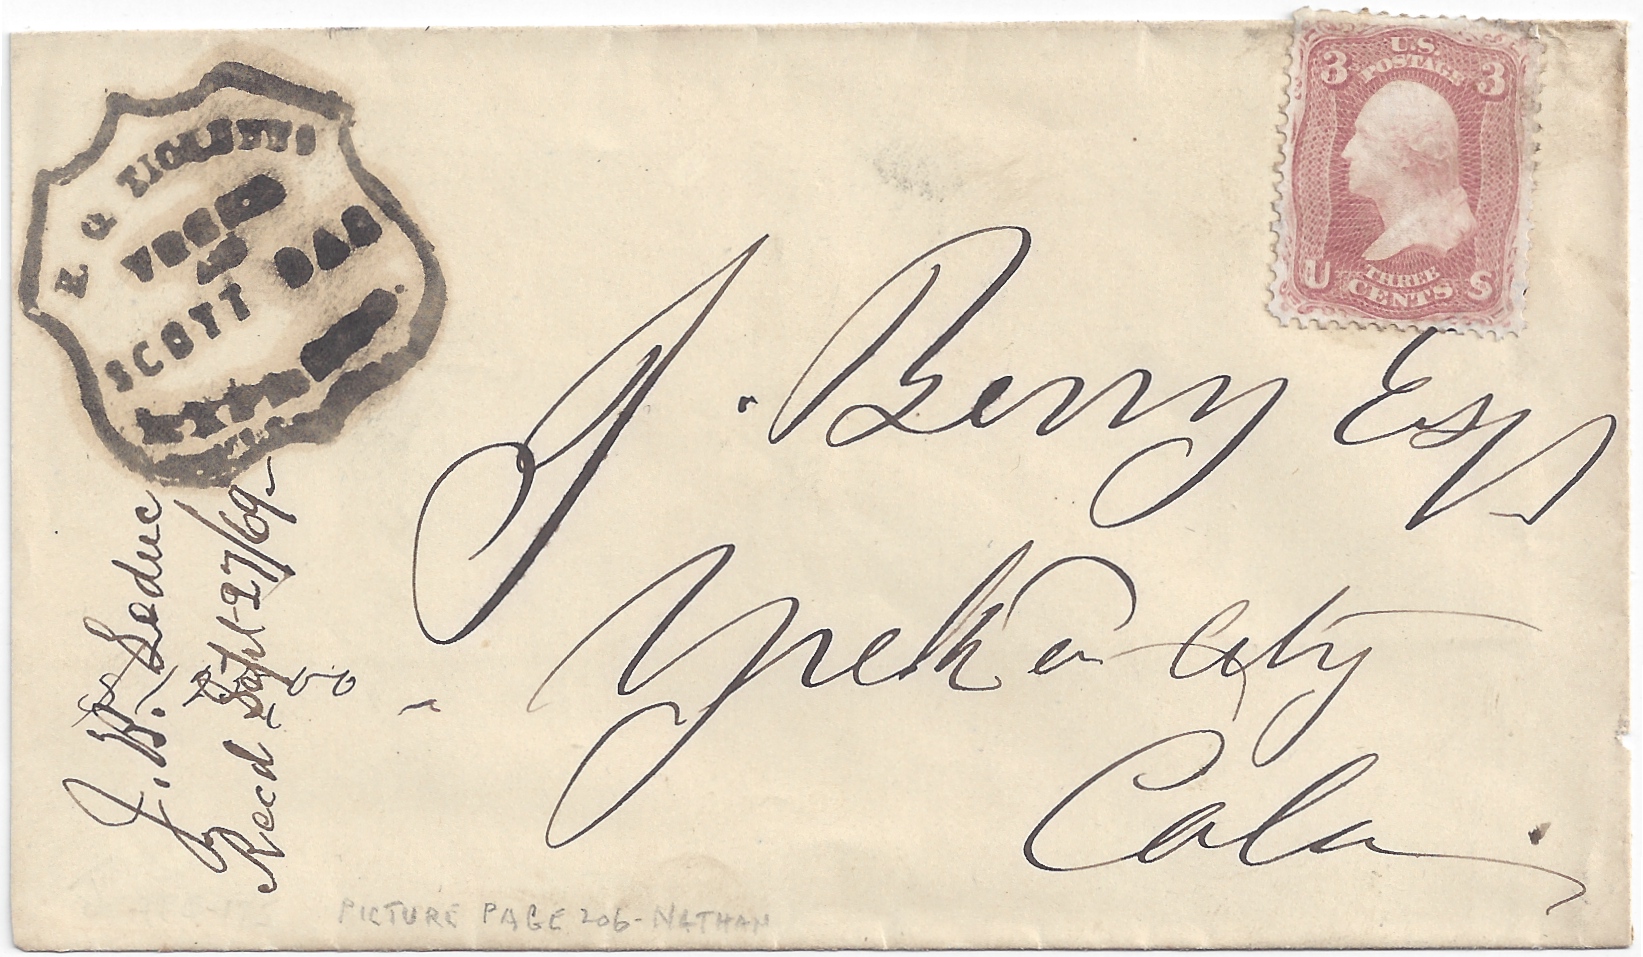 E Q RICKETTS
YREKA
AND
SCOTT BAR
EXPRESS
U.S.
POSTAGE
3 3
U THREE S
CENTS
J. Berry Esq
Yreka City
Cala
J. W. Leduc
Recd Sept 27/69
PICTURE PAGE 206 - NATHAN